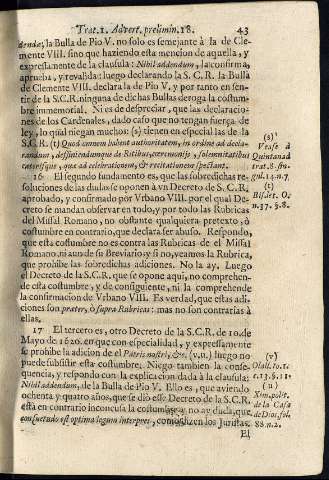 Trat. 1. Advert. prelimin. 18. 43
dendæ; la Bulla de Pio V. no solo es semejante à la de Cle-
mente VIII. sino que haziendo esta mencion de aquella, y
expressamente de la clausula: Nihil addendum, la confirma,
aprueba, y revalida: luego declarando la S.C.R. la Bulla
de Clemente VIII. declara la de Pio V, y por tanto en sen-
tir de la S.C.R. ninguna de dichas Bullas deroga la costum-
bre immemorial. Ni es de despreciar, que las declaracio-
nes de los Cardenales, dado caso que no tengan fuerça de
ley, lo qual niegan muchos: (s) tienen en especial las de la
S.C.R. (t) Quod cùm habent authoritatem, in ordine ad decla-
randum, & definiendum que de Ritibus, ceremonijs, solemnitatibus
que ad celebrationem, & recitationem spectant.
16 El segundo fundamento es, que las sobredichas re-
soluciones de las dudas se oponen à vn Decreto de S.C.R.
aprobado, y confirmado por Vrbano VIII. por el qual De-
creto se mandan observar en todo, y por todo las Rubricas
del Missal Romano, no obstante qualquiera pretexto, ò
costumbre en contrario, que declara ser abuso. Respondo,
que esta costumbre no es contra las Rubricas de el Missal
Romano, ni aun de su Breviario, y si no, veamos la Rubrica,
que prohibe las sobredichas adiciones. No la ay. Luego
el Decreto de la S.C.R. que se opone aqui, no comprehen-
de esta costumbre, y de consiguiente, ni la comprehende
la confirmacion de Vrbano VIII. Es verdad, que estas adi-
ciones son præter, ò supra Rubricas: mas no son contrarias à
ellas.
17 El tercero es, otro Decreto de la S.C.R. de 10. de
Mayo de 1620. en que con especialidad, y expressamente
se prohibe la adicion de el Patris nostri, &c. (v,u.) luego no
puede subsistir esta costumbre. Niego tambien la conse-
quencia, y respondo con la explicacion dada à la clausula:
Nihil addendum, de la Bulla de Pio V. Ello es, que aviendo
ochenta y quatro años, que se diò esse Decreto de la S.C.R.
està en contrario inconcusa la costumbre, y no ay duda, que
consuetudo est optima legum interpres, como dizen los Juristas.
El
(s)
Vease à
Quintanad
trat. 8. sin-
gul. 14. n. 7.
(t)
n. 37. §. 8.
(v)
(u)
de la Casa
de Dios, fol.
88. n. 2.